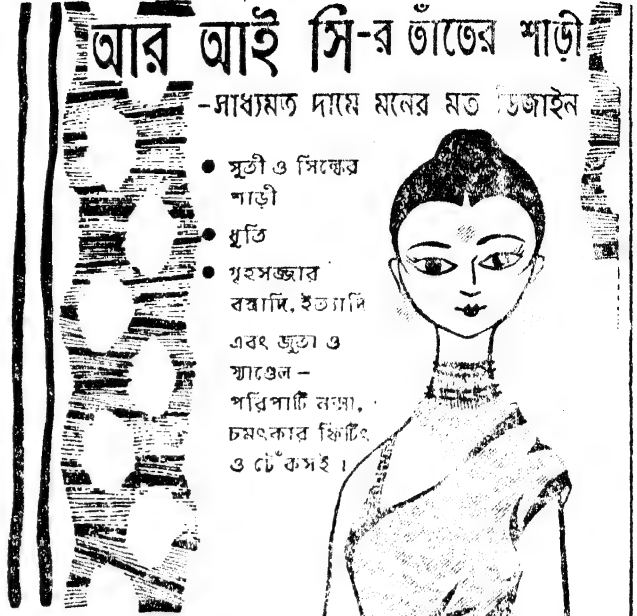 আর আই সি-র তাঁতের শাড়ী
-সাধ্যমত দামে মনের মত ডিজাইন
● সূতী ও সিল্কের
শাড়ী
● ধুতি
● গৃহসজ্জার
বস্ত্রাদি, ইত্যাদি
এবং জুতা ও
স্যাণ্ডেল –
পরিপাটি নক্সা,
চমৎকার ফিটিং
ও টেঁকসই ।